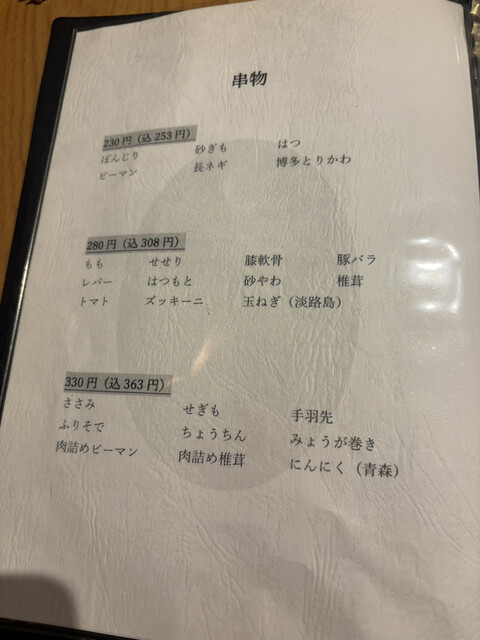 串物
230円（込253円）
ぼんじり 砂ぎも はつ
ピーマン 長ネギ 博多とりかわ
280円（込308円）
もも せせり 膝軟骨 豚バラ
レバー はつもと 砂やわ 椎茸
トマト ズッキーニ 玉ねぎ（淡路島）
330円（込363円）
ささみ せぎも 手羽先
ふりそで ちょうちん みょうが巻き
肉詰めピーマン 肉詰め椎茸 にんにく（青森）